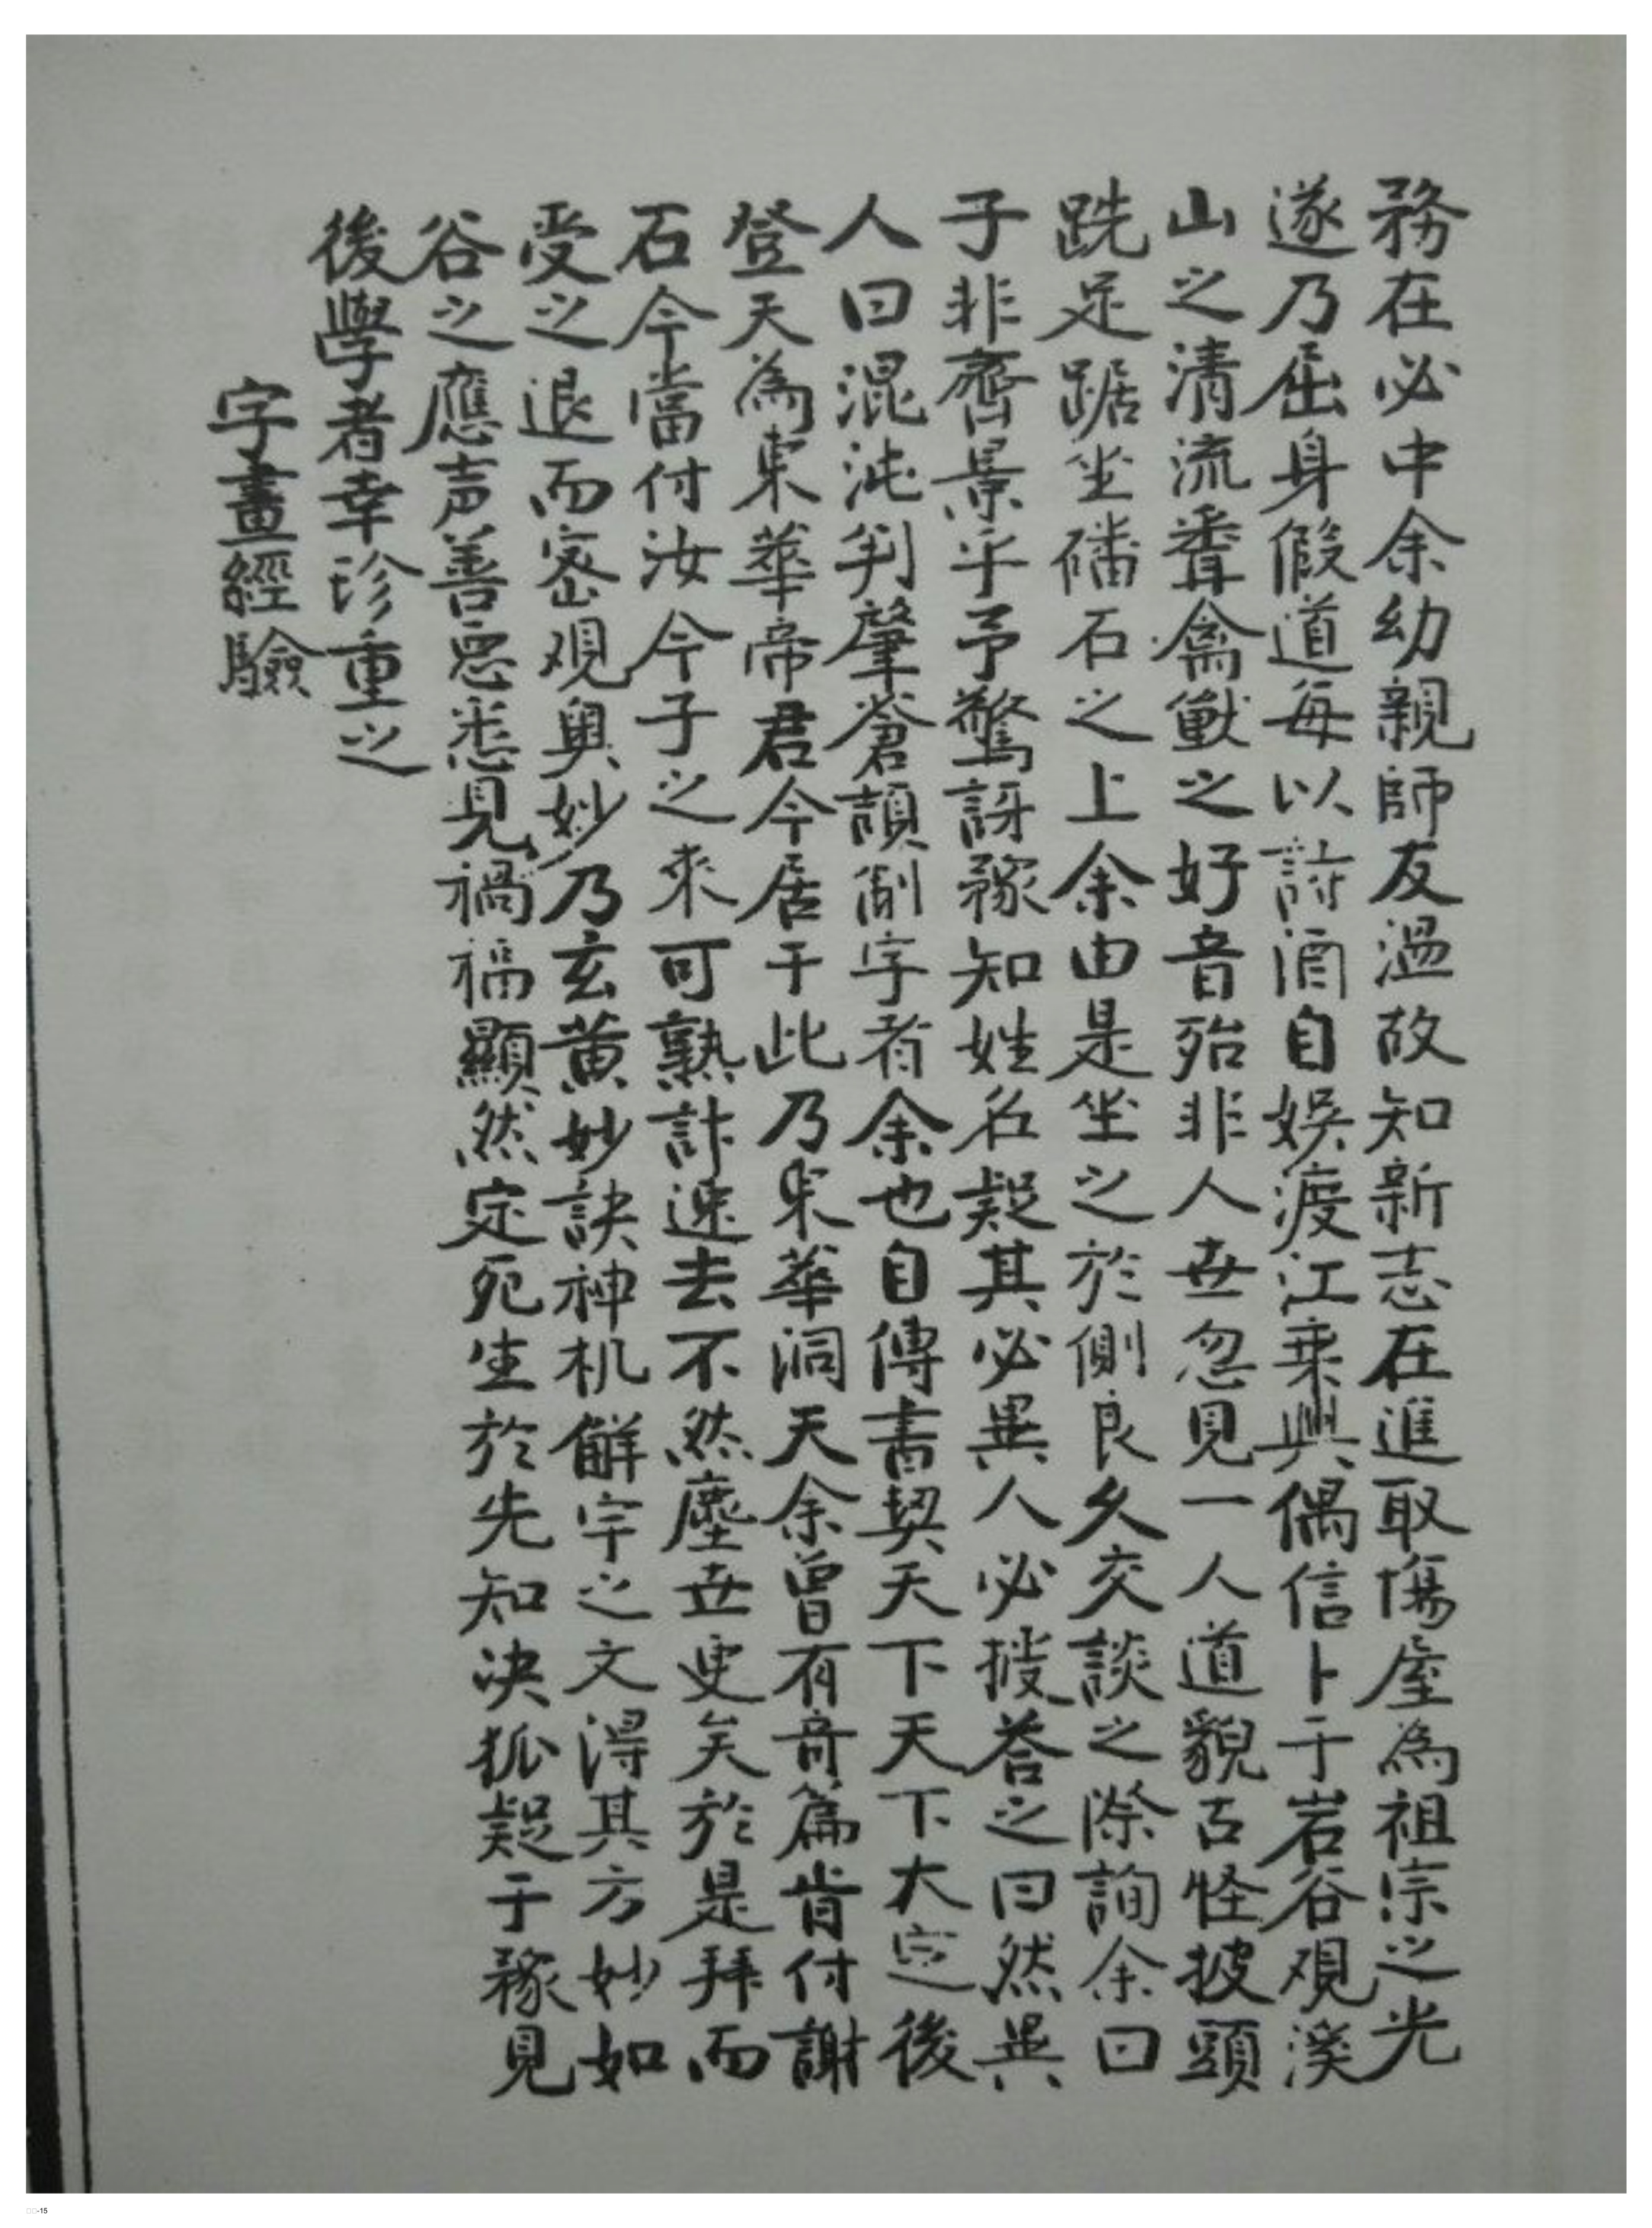 務在必中余幼親師友溫故知新志在進取塲屋為祖宗之光
遂乃屈身假道每以詩酒自娛渡江乘興偶信卜于岩谷观溪
山之清流番禽獸之好音殆非人世忽見一人道貌古怪披頭
跣足踞坐磻石之上余由是坐之於側良久交談之際詢余曰
子非齊景乎予驚訝豫知姓名疑其必異人必披荅之曰然異
人曰混沌判肇蒼頡制字者余也自傳書契天下天下大定後
登天為東華帝君今居于此乃東華洞天余曾有奇篇肯付謝
石今當付汝今子之來可熟計速去不然塵世更矣於是拜而
受之退而密观奧妙乃玄黃妙訣神机觧字之文得其方妙如
谷之應声善恶悉見禍福顯然定死生於先知决狐疑于豫見
後學者幸珍重之
字畫經驗
-15